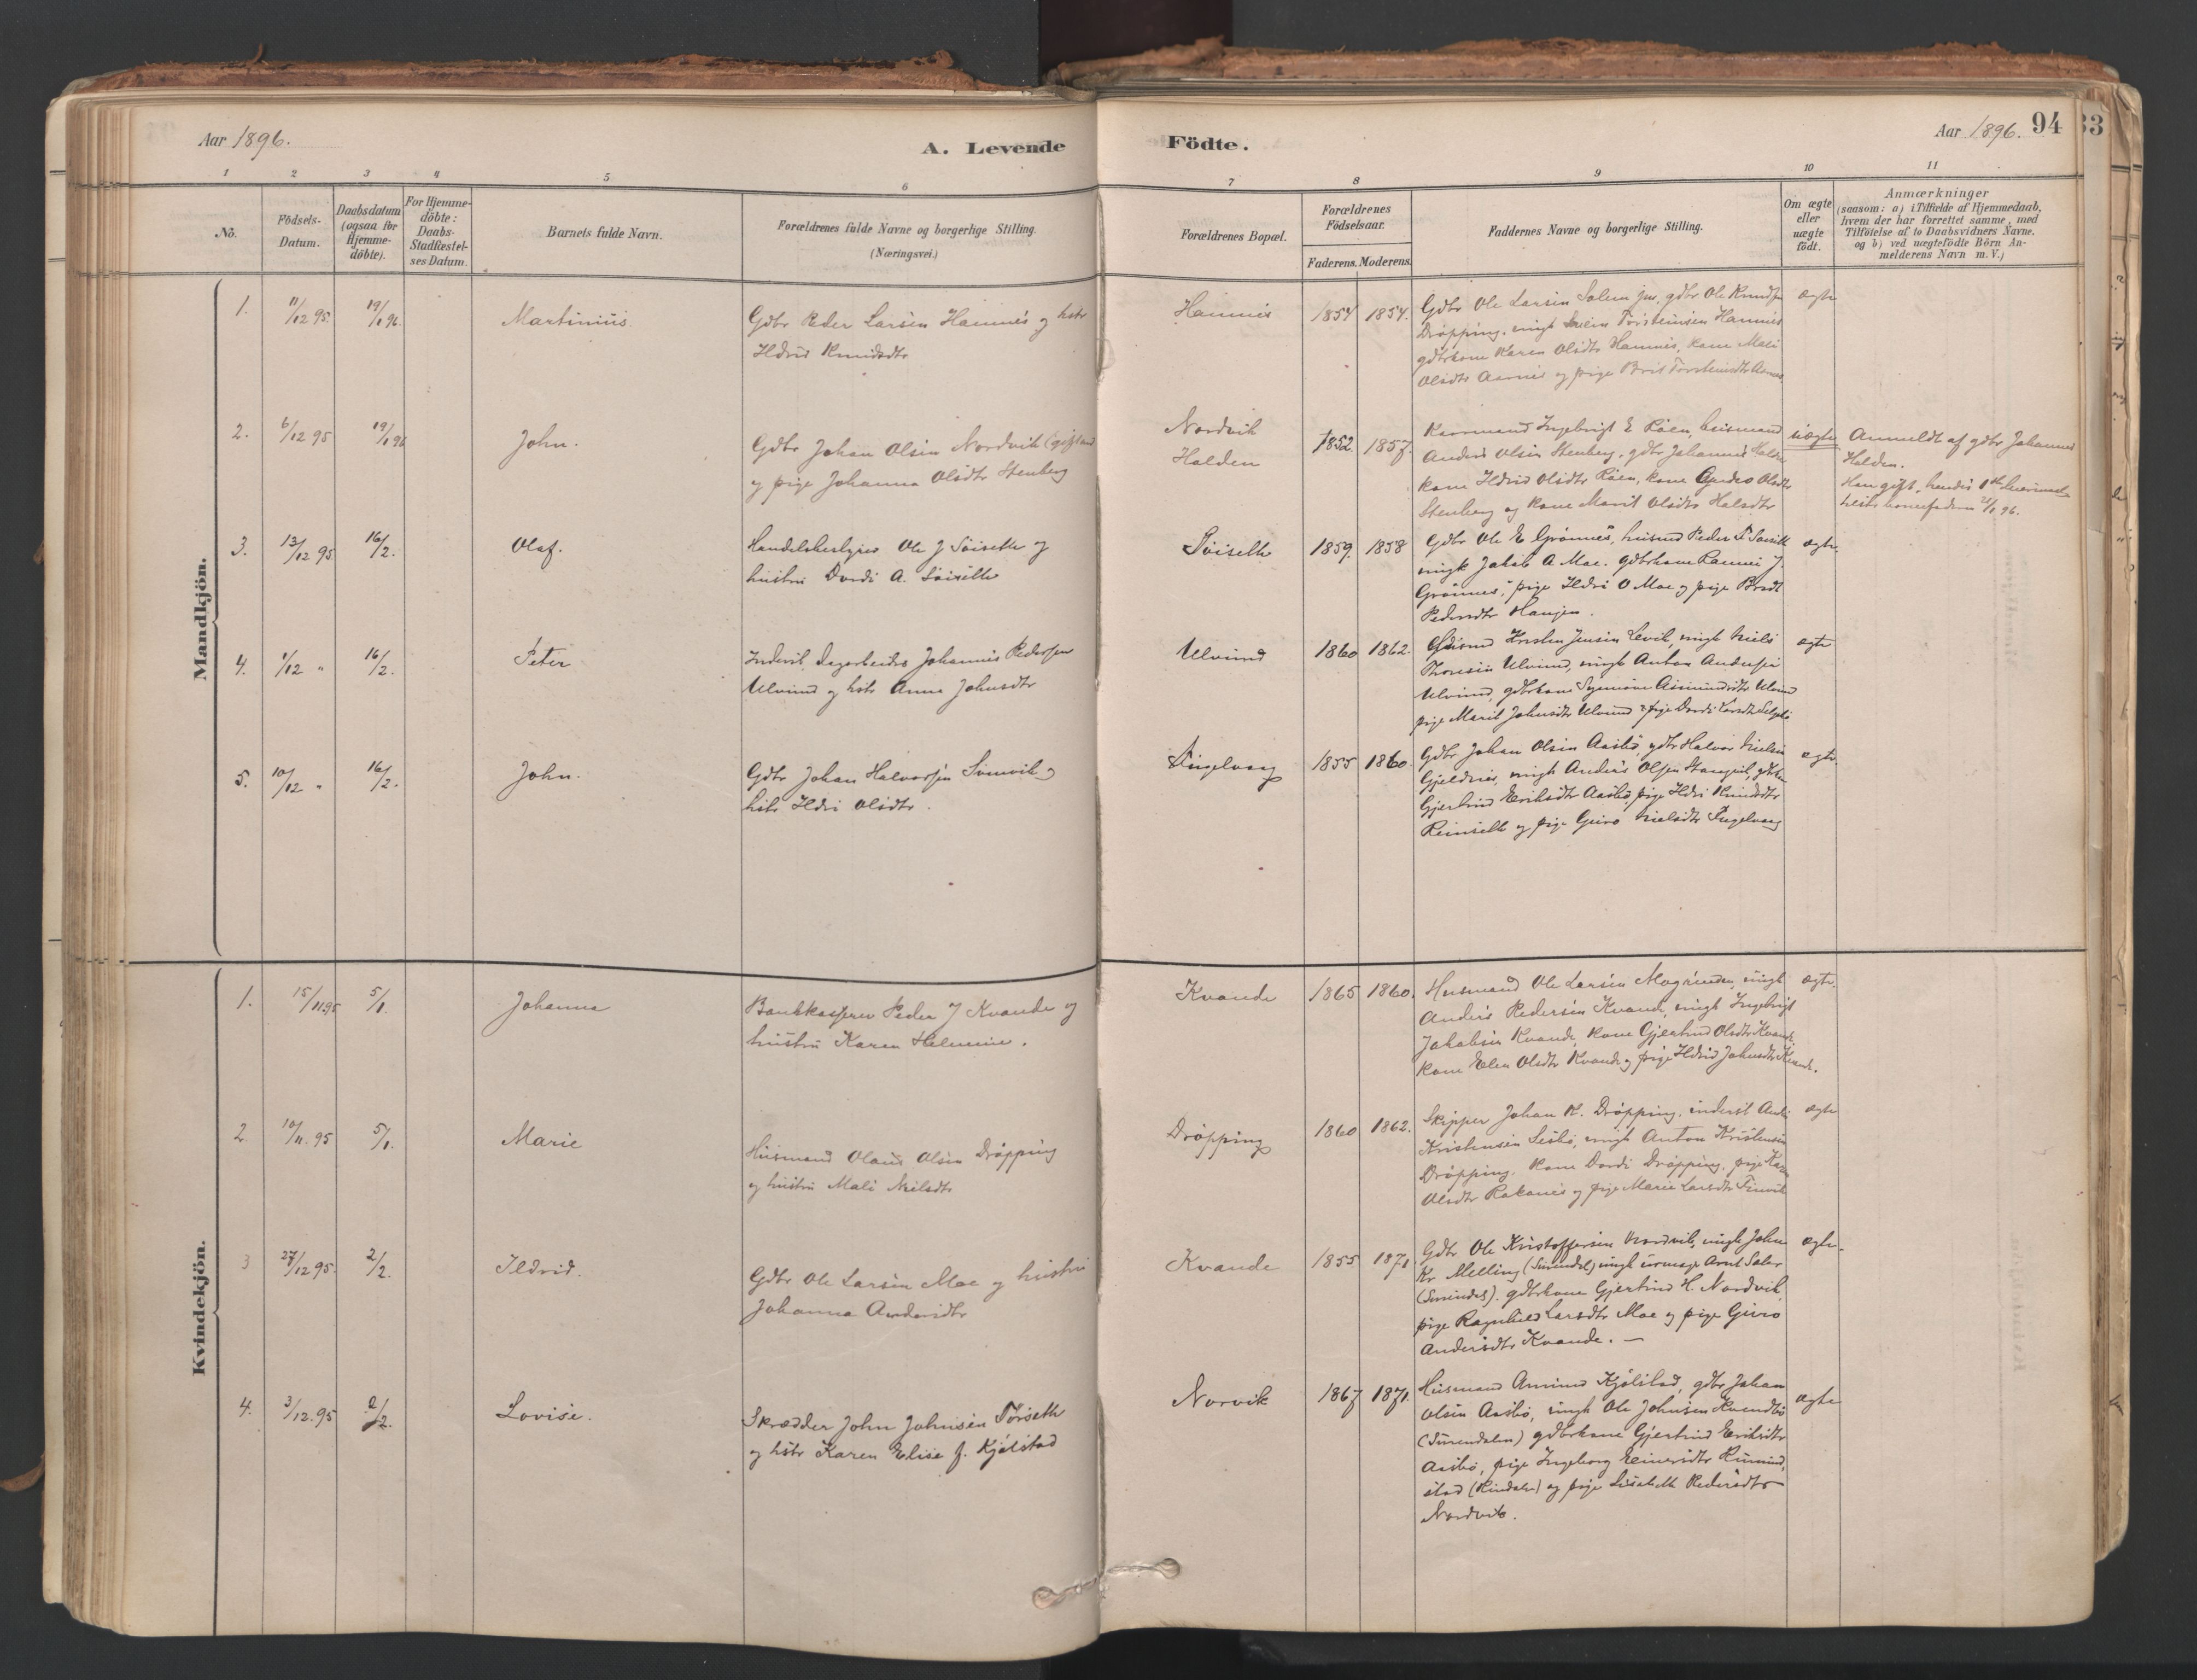 Aar 1896.
A. Levende
Födte.
Aar 1896.
94
33
1 2 3 4 5 6 7 8 9 10 11
No.
Födsels-Datum.
Daabsdatum (ogsaa for Hjemme-döbte).
For Hjemme-döbte: Daabs-Stadfæstel-ses Datum.
Barnets fulde Navn.
Forældrenes fulde Navne og borgerlige Stilling.
(Næringsvei.)
Forældrenes Bopæl.
Forældrenes Födselsaar.
Faderens. Moderens.
Faddernes Navne og borgerlige Stilling.
Om ægte eller uægte födt.
Anmærkninger
(saasom: a) i Tilfælde af Hjemmedaab,
hvem der har forrettet samme, med
Tilföielse af to Daabsvidners Navne.
og b) ved uægtefödte Börn An-
melderens Navn m. V.)
Mandkjön.
1. 11/12 95. 19/1 96. Martinius
Gdbr Peder Larsen Hamnes og hstr
Ildrid Knudsdtr
Hamnes 1854 1854.
Gdbr Ole Larsen Solem jun, gdbr Ole Knudsen
Dröpping, ungk Svein Torsteinsen Hamnes
gdbrkone Karen Olsdtr Hamnes, kone Mali
Olsdtr Aarnes og pige Brit Torsteinsdtr Aarnes
ægte
2. 6/12 95 19/1 96 John.
Gdbr Johan Olsen Nordvik (gift)
og pige Johanna Olsdtr Stenberg
Nordvik
Halden
1852. 1857.
Kaarmand Ingebrigt E Röen, husmand
Anders Olsen Stenberg, gdbr Johannes Halden
kone Ildrid Olsdtr Röen, kone Olsdtr
Stenberg og kone Marit Olsdtr
uægte
Anmeldt af gdbr Johannes
Halden.
Han gift, hendes 1ste
96.
3. 13/12 95 16/2. Olaf.
Handelsbestyrer Ole J Söiseth og
hustru Dordi A. Söiseth
Söiseth 1859. 1858
Gdbr Ole E Grönnes, husmd Peder
ungk Jakob A Moe. gdbrkone J.
Grönnes, pige Ildri O Moe og pige
Pedersdtr Haugen.
ægte.
4. 1/12 " 16/2. Peter
Inderst, Dagarbeider Johannes Pedersen
Ulvund og hstr Anne Johnsdtr
Ulvund 1860 1862.
Kristen Jensen Levik, ungk Niels
Thoresen Ulvund, ungk Anton Andersen
Ulvund, gdbrkone Ulvund
pige Marit Johnsdtr Ulvund pige Dordi Larsdtr
ægte
5. 10/12 " 16/2. John.
Gdbr Johan Halvorsen og
hstr Ildri Olsdtr.
Engelvang 1855 1860.
Gdbr Johan Olsen Aasbö, gdbr Halvor Nielsen
Gjeldnes, ungk Anders Olsen Stangvik,
Gjertrud Eriksdtr Aasbö, pige Ildri Knudsdtr
og pige Guro Nielsdtr Engelvang
ægte.
Kvindekjön.
1. 15/11 95 5/1. Johanna
Bankkasserer Peder J Kvande og
hustru Karen Helmine.
Kvande 1865 1860.
Husmand Ole Larsen ungk
Anders Pedersen Kvande, ungk Ingebrigt
Jakobsen Kvande, kone Gjertrud Olsdtr Kvande.
kone Elen Olsdtr Kvande og pige Ildrid Johnsdtr Kvande.
ægte.
2 10/11. 95 5/1. Marie
Husmand Olaus Olsen Dröpping
og hustru Mali Nilsdtr
Dröpping 1860 1862.
Skipper Johan K. Dröpping, inderst
Kristensen ungk Anton Kristensen
Dröpping, kone Dordi Dröpping, pige
Olsdtr og pige Marie Larsdtr
ægte
3 27/12 95. 2/2. Ildrid.
Gdbr Ole Larsen Moe og hustru
Johanna Andersdtr
Kvande 1855 1871
Gdbr Ole Kristoffersen Nordvik, ungk John
Kr Melling (Surendal) ungk urmager Arnt Sæter
(Surendal). gdbrkone Gjertrud H. Nordvik,
pige Ragnhild Larsdtr Moe og pige Guro
Andersdtr Kvande. —
ægte.
4. 3/12. 95 2/2. Lovise.
Skrædder John Johnsen Torseth
og hstr Karen Elise f. Kjölstad
Norvik 1867 1871.
Husmand Kjölstad, gdbr Johan
Olsen Aasbö, ungk Ole Johnsen
(Surendalen) gdbrkone Gjertrud Eriksdtr
Aasbö, pige Ingeborg Einersdtr
stad (Rindalen) og pige Lisabeth Pedersdtr
Nordvik.
ægte